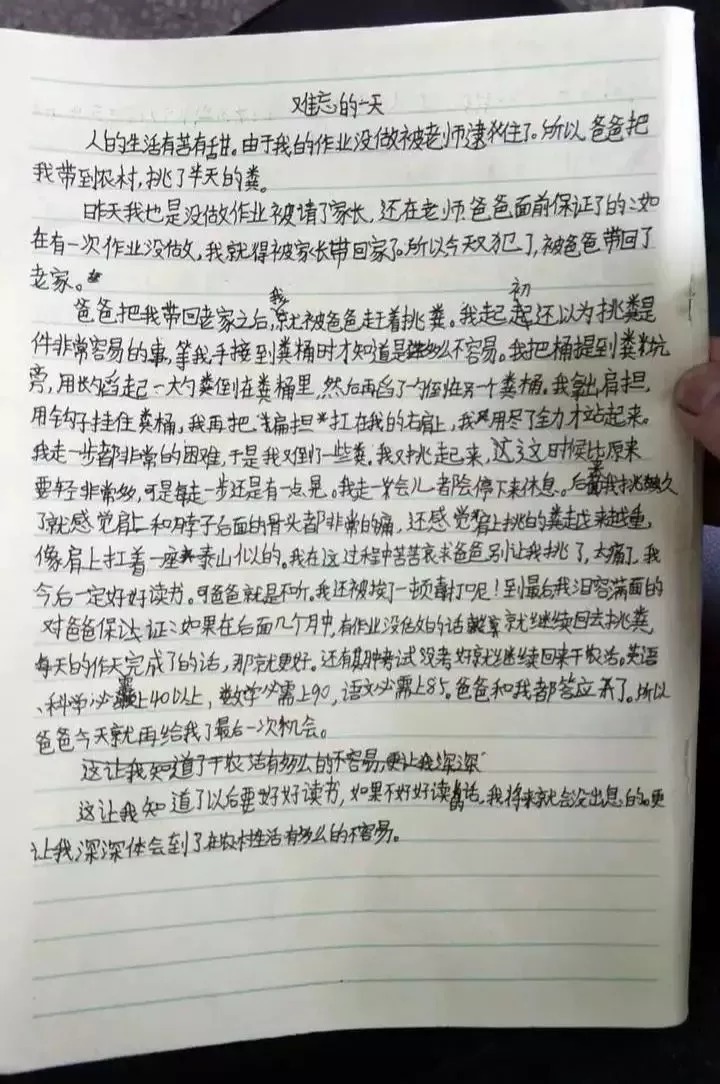 难忘的一天
人的生活有苦有甜。由于我的作业没做被老师逮住了。所以爸爸把
我带到农村,挑了半天的粪。
昨天我也是没做作业被请了家长,还在老师爸爸面前保证了的:如
在有一次作业没做,我就得被家长带回家了。所以今天又犯了,被爸爸带回了
老家。
爸爸把我带回老家之后,我就被爸爸赶着挑粪。我起初还以为挑粪是
件非常容易的事,等我手接到粪桶时才知道是多么不容易。我把桶提到粪坑
旁,用长勺舀起一大勺粪倒在粪桶里,然后再舀了勺倒在另一个粪桶。我拿出肩担,
用钩子挂住粪桶,我再把扁担扛在我的右肩上,我用尽了全力才站起来。
我走一步都非常的困难,于是我又倒了一些粪。我又挑起来,这时候比原来
要轻非常多,可是每走一步还是有一点晃。我走一会儿都会停下来休息。后来我挑久
了就感觉肩上和脖子后面的骨头都非常的痛,还感觉肩上挑的粪越来越重,
像肩上扛着一座泰山似的。我在这过程中苦苦哀求爸爸别让我挑了,太痛了,我
今后一定好好读书。可爸爸就是不听。我还被挨了一顿毒打呢!到最后我泪容满面的
对爸爸保证:如果在后面几个月中,有作业没做的话就继续回去挑粪,
每天的作天完成了的话,那就更好。还有期中考试没考好就继续回来干农活。英语
、科学必需上40以上,数学必需上90,语文必需上85。爸爸和我都答应了。所以
爸爸今天就再给我了最后一次机会。
这让我知道了干农活有多么的不容易,更让我深深
这让我知道了以后要好好读书,如果不好好读书的话,我将来就会没出息的。更
让我深深体会到了在农村生活有多么的不容易。